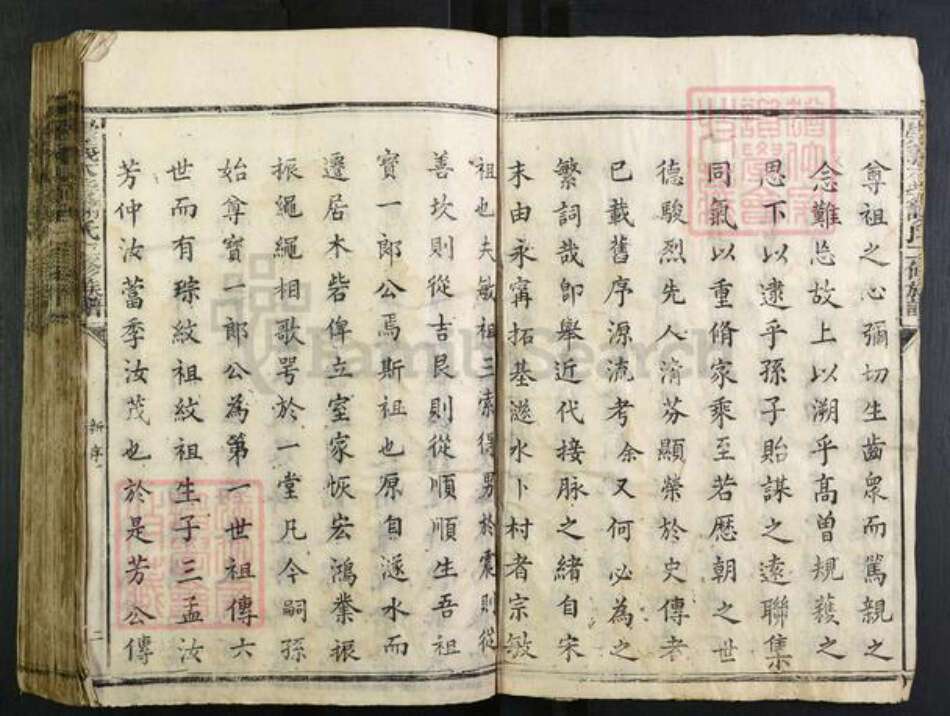 尊祖之心彌切生齒眾而篤親之
念難忘故上以溯乎高曾規蒦之
思下以逮乎孫子貽謀之遠聯集
同氣以重脩家乘至若歷朝之世
德駿烈先人清芬顯榮於史傳者
已載舊序源流考余又何必為之
繁詞哉卽舉近代接脉之緒自宋
末由永寧拓基遂水卜村者宗敏
祖也夫敏祖三索得男於震則從
善坎則從吉艮則從順順生吾祖
寶一郎公焉斯祖也原自遂水而
遷居木砦俾立室家恢宏鴻業振
振繩繩相歌咢於一堂凡今嗣孫
始尊寶一郎公為第一世祖傳六
世而有琮紋祖紋祖生子三孟汝
芳仲汝蕾季汝茂也於是芳公傳
新序
二
FamilySearch